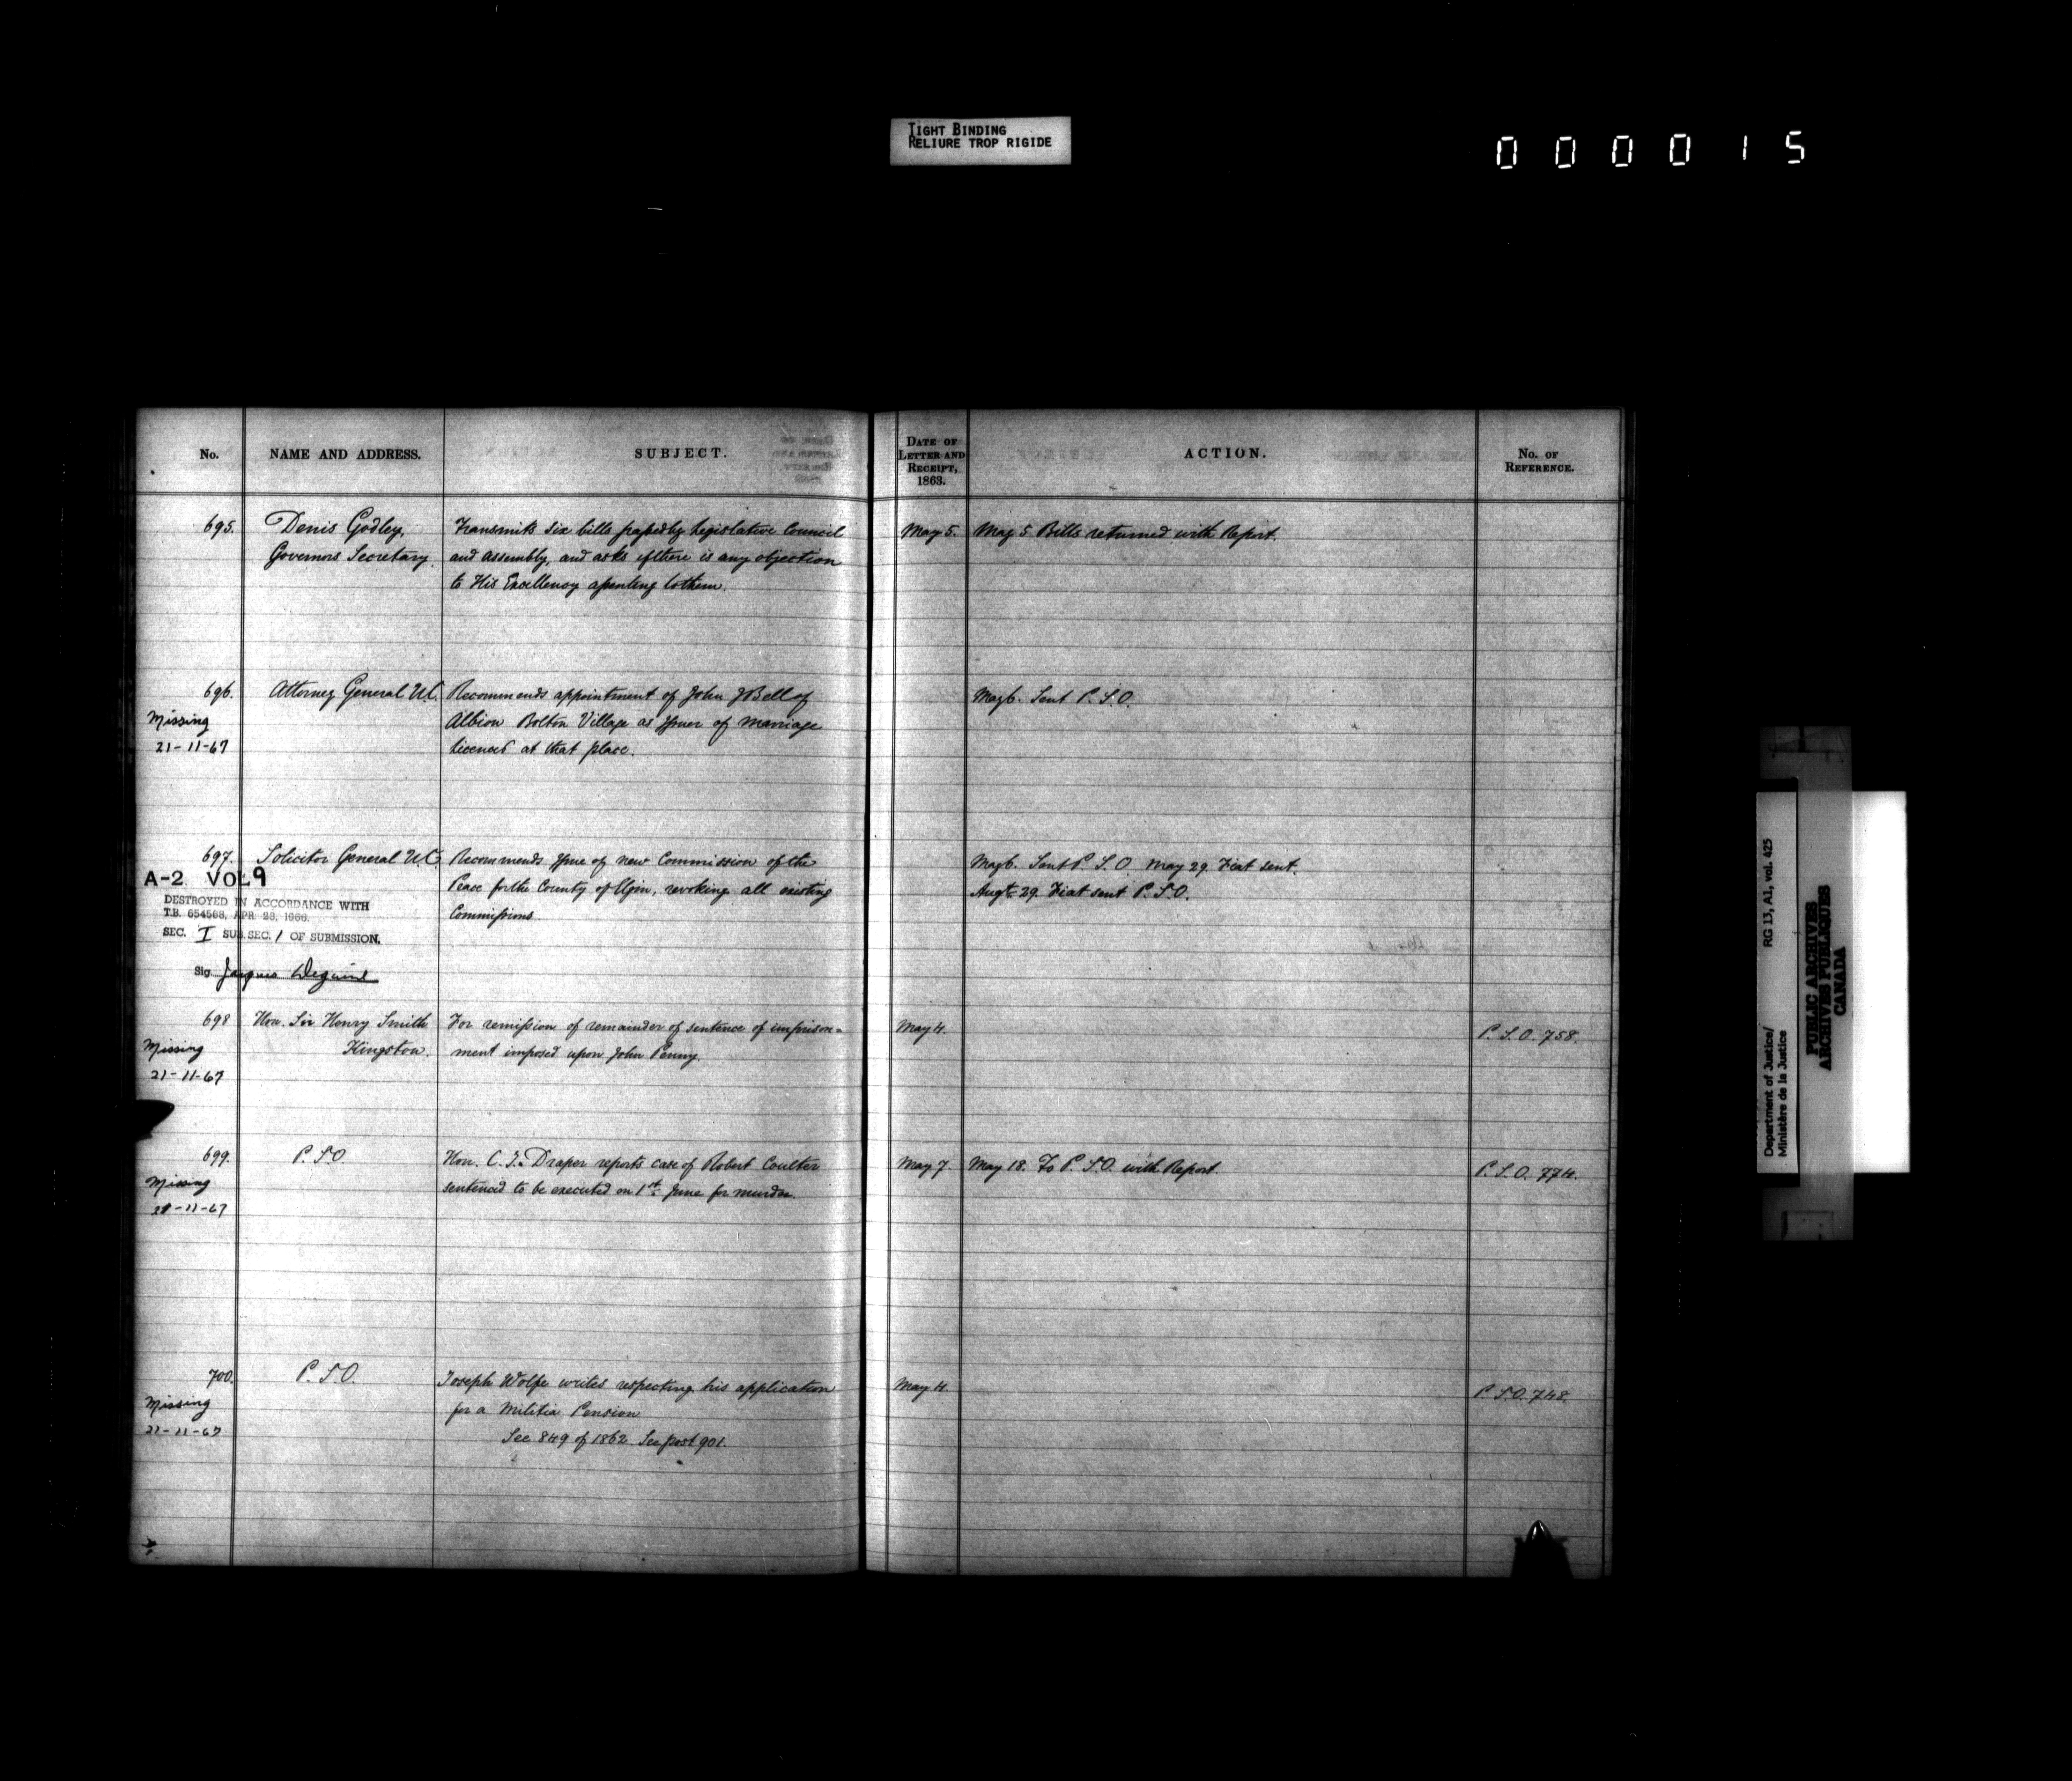 TIGHT BINDING
RELIURE TROP RIGIDE
000015
No. NAME AND ADDRESS. SUBJECT. DATE OF LETTER AND RECEIPT, 1863. ACTION. No. OF REFERENCE.
695. Denis Godley, Transmits six bills passed by Legislative Council May 5. May 5 Bills returned with Report.
Governors Secretary. and assembly, and asks if there is any objection
to His Excellency assenting to them.
696. Attorney General U.C. Recommends appointment of John J Bell of May 6. Sent P.S.O.
Missing Albion Bolton Village as Issuer of Marriage
21-11-67 Licenses at that place.
697. Solicitor General U.C. Recommends Issue of new Commission of the May 6. Sent P.S.O. May 29. Fiat sent.
A-2 VOL 9 Peace for the County of Elgin, revoking all existing Augt. 29. Fiat sent P.S.O.
DESTROYED IN ACCORDANCE WITH Commissions
T.B. 654568, APR. 28, 1966.
SEC. I SUB. SEC. 1 OF SUBMISSION.
Sig. Jacques
698 Hon. Sir Henry Smith For remission of remainder of sentence of imprison= May 4. P.S.O. 758.
Missing Kingston. ment imposed upon John Penny.
21-11-67
699. P.S.O. Hon. C.J. Draper reports case of Robert Coulter May 7. May 18. To P.S.O. with Report. P.S.O. 774.
Missing sentenced to be executed on 1st. June for murder.
21-11-67
700. P.S.O. Joseph Wolfe writes respecting his application May 4. P.S.O. 748.
Missing for a Militia Pension
21-11-67 See 849 of 1862. See post 901.
Department of Justice/ RG 13, A1, vol. 425
Ministère de la Justice
PUBLIC ARCHIVES
ARCHIVES PUBLIQUES
CANADA